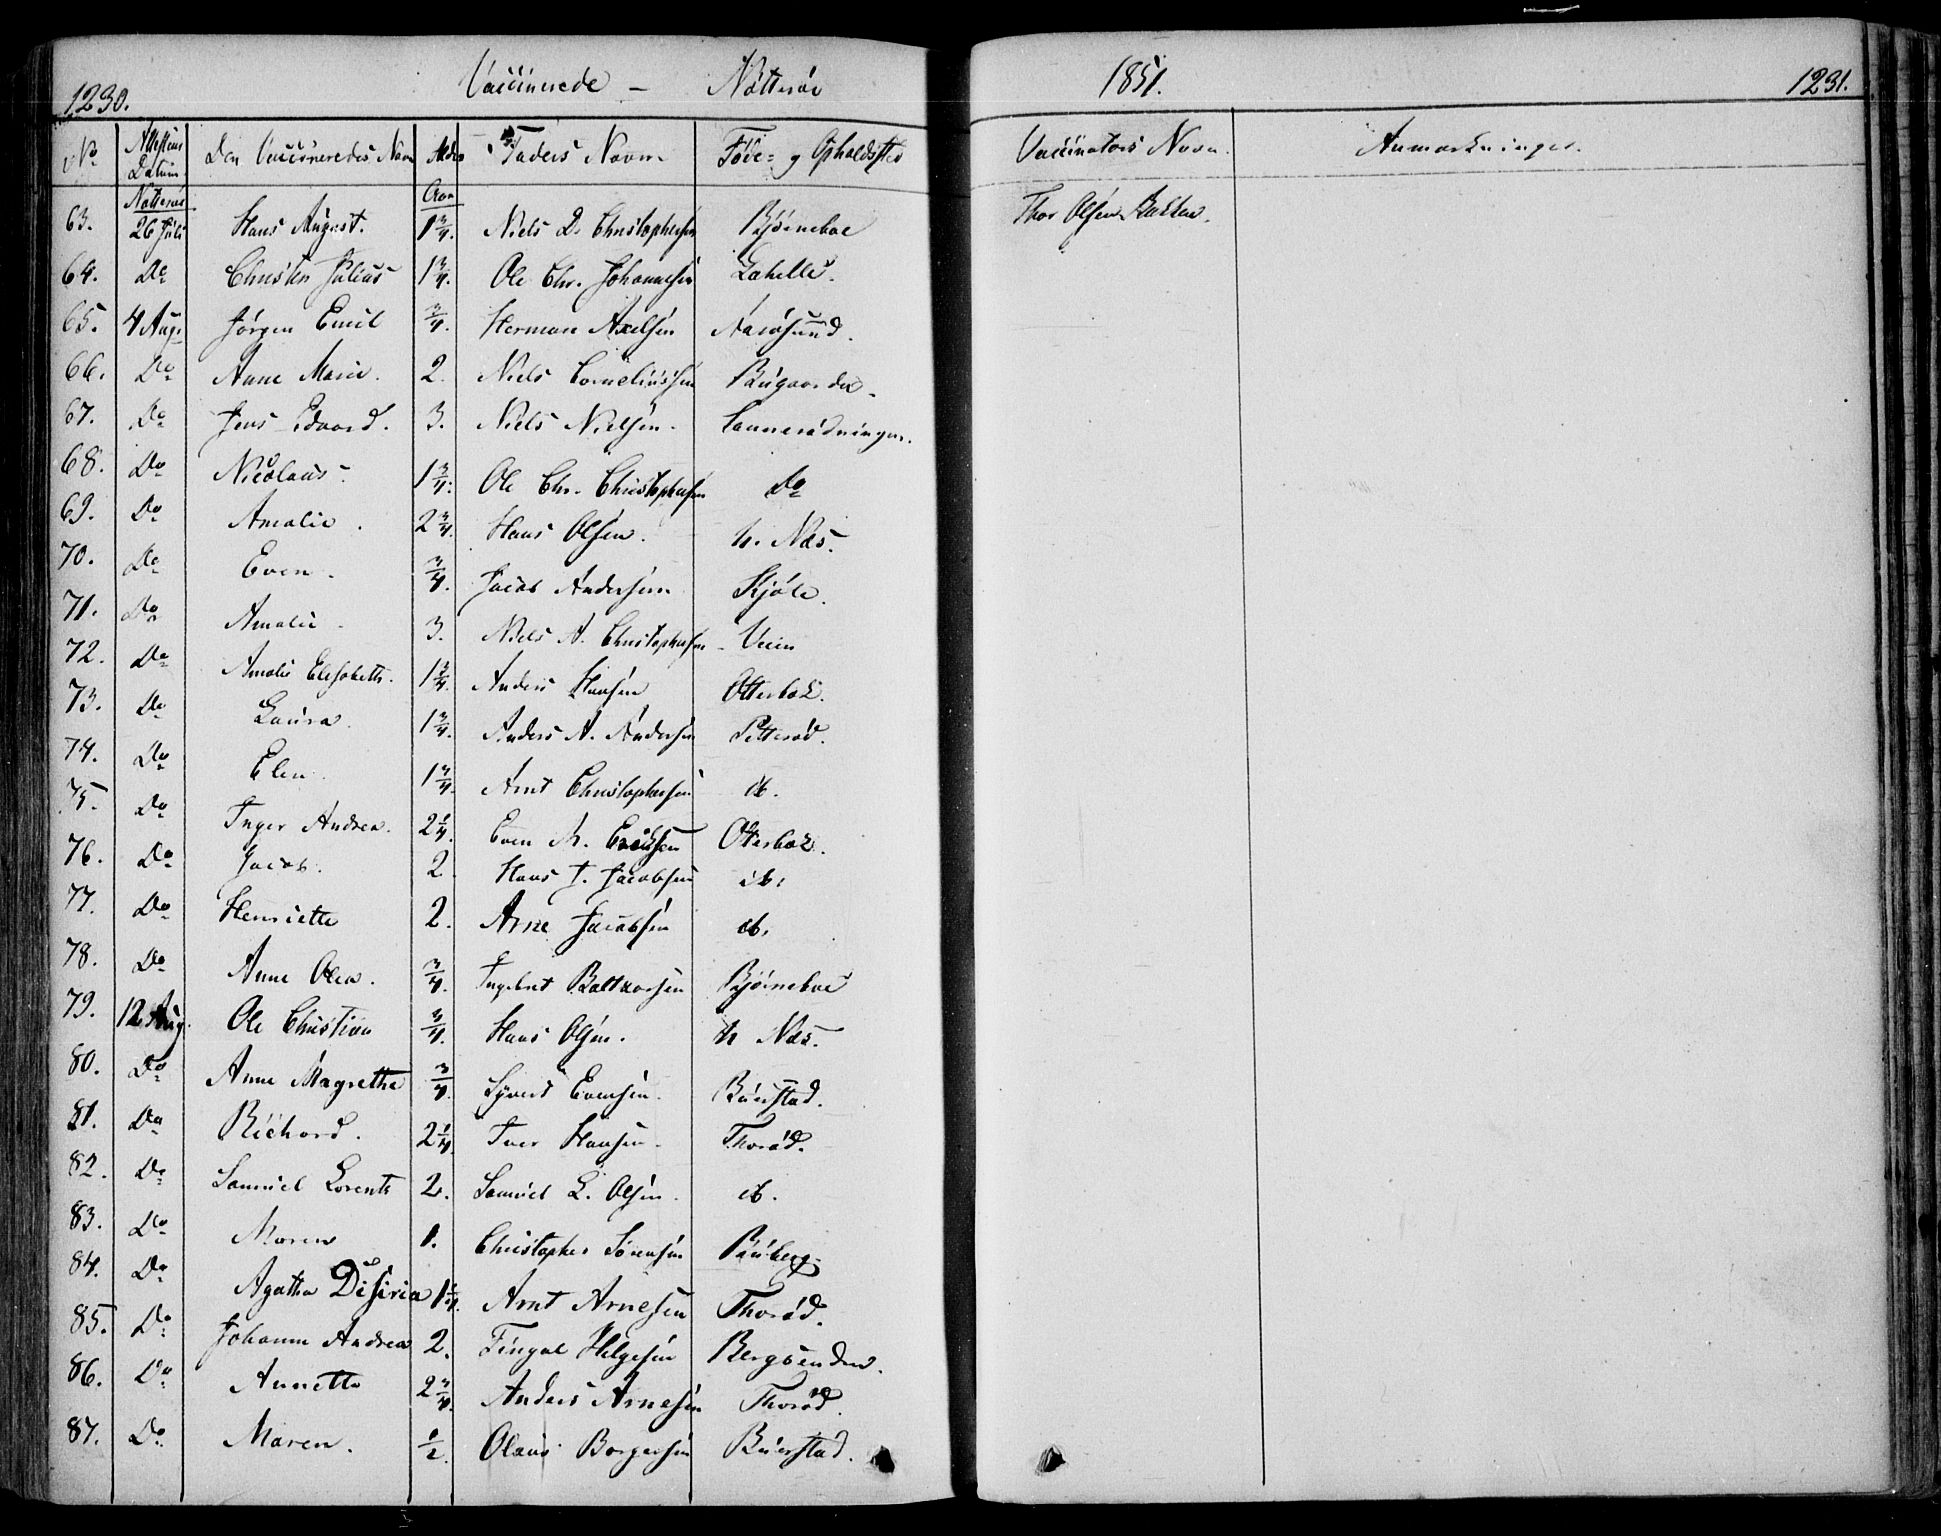 1230. Vaccinerede – Nötteröe 1851. 1231.
No Attestens Datum. Den Vaccineredes Navn Alder Faders Navn Föde- og Opholdssted Vaccinators Navn. Anmærkninger.
Nötteröe Aar
63. 26 Juli Hans August. 1 3/4. Niels D. Christophersen Bjørneboe Thor Olsen Bakken.
64. Do Christen Julius 1 3/4. Ole Chr. Johannesen
65. 4 Aug. Jørgen Emil 3/4. Herman Axelsen
66. Do Anne Marie. 2. Niels Corneliussen Bugaarden.
67. Do Jens Edvard. 3. Niels Nielsen.
68. Do Nicolaus. 1 3/4. Ole Chr. Christophersen Do
69. Do Amalie. 2 3/4. Hans Olsen. n. Næs.
70. Do Even. 3/4. Jacob Andersen Skjöle.
71. Do Amalie 3. Niels A. Christophersen Veien
72. Do Amalie Elisabeth. 1 3/4. Anders Hansen Otterbæk.
73. Do Laura. 1 3/4. Anders A. Andersen Petteröd.
74. Do Elen. 1 3/4. Arnt Christophersen ib.
75. Do Inger Andrea. 2 1/4. Even M. Eriksen Otterbæk.
76. Do Jacob. 2 Hans J. Jacobsen ib.
77. Do Henriette 2. Arne Jacobsen ib.
78. Do Anne Olea. 3/4. Ingebret Baltzarsen Bjørneboe
79. 12 Aug. Ole Christian 3/4. Hans Olsen. n Næs.
80. Do Anne Magrethe 3/4. Syvert Evensen. Buerstad.
81. Do Richard. 2 1/4. Iver Hansen. Thoröd.
82. Do Samuel Lorents 2. Samuel L. Olsen. ib.
83. Do Maren 1. Christopher Sörensen
84. Do Agatha Disiria 1 1/4. Arnt Arnesen Thoröd.
85. Do Johanne Andrea 2. Fingal Helgesen Bergsenden.
86. Do Annette 2 3/4. Anders Arnesen Thoröd.
87. Do Maren. 1/2. Olaus Borgersen Buerstad.